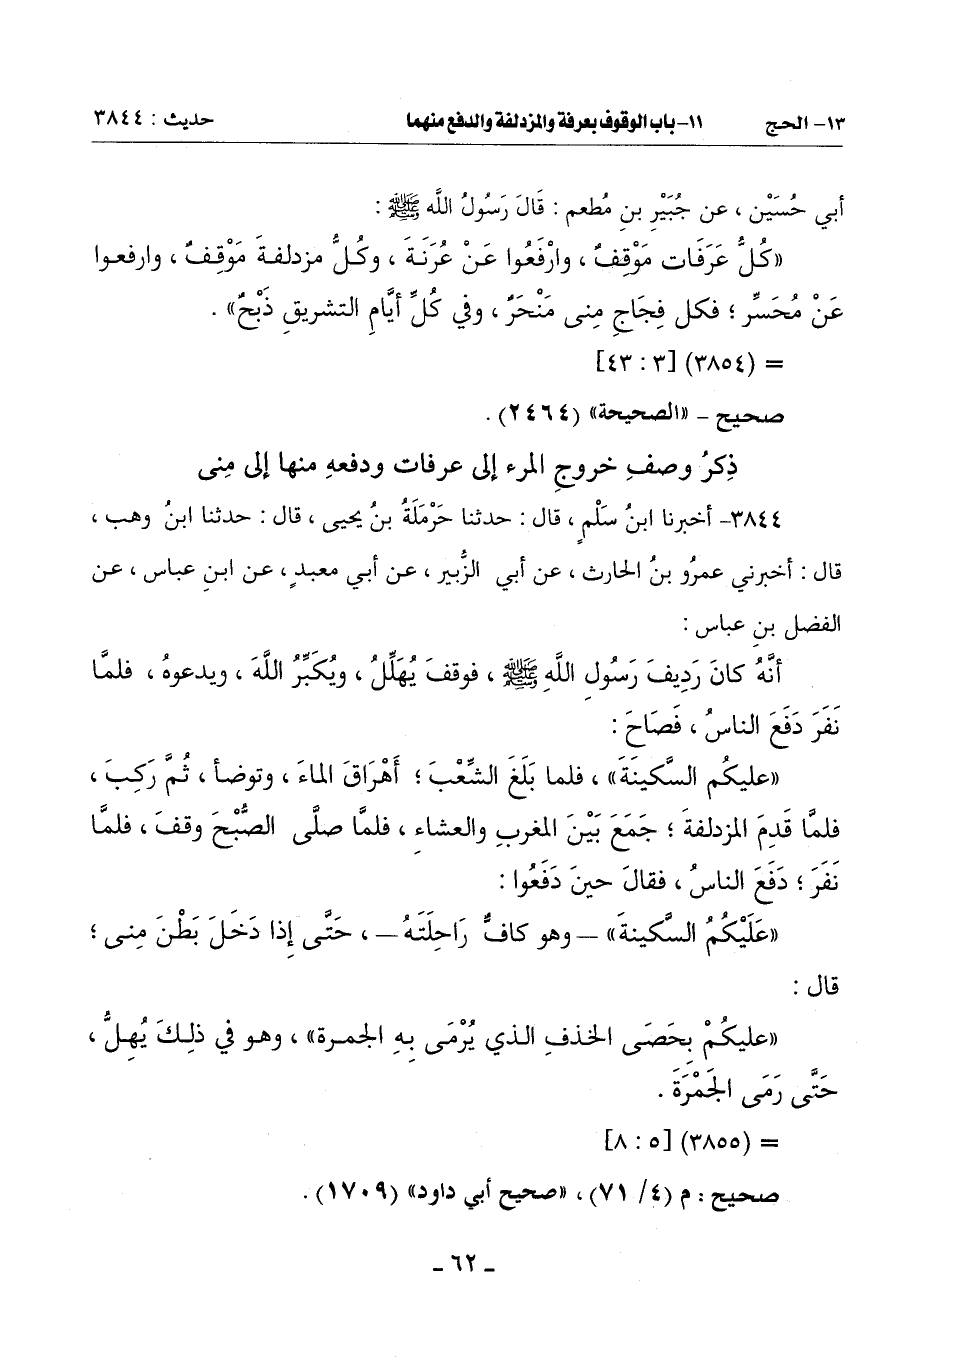 ١٣- الحج ١١- باب الوقوف بعرفة والمزدلفة والدفع منهما حديث : ٣٨٤٤
أبي حُسَيْن ، عن جُبَيْرِ بنِ مُطعم : قَالَ رَسُولُ اللَّه ﷺ :
«كُلُّ عَرَفَات مَوْقِفٌ ، وارْفَعُوا عَنْ عُرَنَةَ ، وكُلُّ مزدلفةَ مَوْقِفٌ ، وارفعوا
عَنْ مُحَسِّر ؛ فكل فِجَاجِ مِنى مَنْحَرٌ ، وفي كُلِّ أيَّامِ التشريقِ ذَبْحٌ» .
= (٣٨٥٤) [٣ : ٤٣]
صحيح - «الصحيحة» (٢٤٦٤) .
ذِكرُ وصفِ خروجِ المرء إلى عرفات ودفعهِ منها إلى مِنى
٣٨٤٤- أخبرنا ابنُ سَلْمٍ ، قال : حدثنا حَرْمَلَةُ بنُ يحيى ، قال : حدثنا ابنُ وهب ،
قال : أخبرني عمرُو بنُ الحارث ، عن أبي الزُّبير ، عن أبي معبدٍ ، عن ابنِ عباس ، عن
الفضل بنِ عباس :
أنَّهُ كانَ رَدِيفَ رَسُولِ اللَّهِ ﷺ ، فوقفَ يُهَلِّلُ ، ويُكَبِّرُ اللَّهَ ، ويدعوهُ ، فلمَّا
نَفَرَ دَفَعَ الناسُ ، فَصَاحَ :
«عليكُم السَّكِينَةَ» ، فلما بَلَغَ الشِّعْبَ ؛ أَهْرَاقَ الماءَ ، وتوضأ ، ثُمَّ رَكِبَ ،
فلمَّا قَدِمَ المزدلفةَ ؛ جَمَعَ بَيْنَ المغربِ والعشاءِ ، فلمَّا صلَّى الصُّبْحَ وقفَ ، فلمَّا
نَفَرَ ؛ دَفَعَ الناسُ ، فقالَ حينَ دَفَعُوا :
«عَلَيْكُمُ السَّكينةَ» - وهو كافٌّ رَاحِلَتَهُ - ، حَتَّى إذا دَخَلَ بَطْنَ مِنى ؛
قال :
«عليكُمْ بِحَصَى الخذفِ الذي يُرْمَى بِهِ الجمرة» ، وهو في ذلِكَ يُهِلُّ ،
حَتَّى رَمَى الجَمْرَةَ .
= (٣٨٥٥) [٥ : ٨]
صحيح : م (٤/ ٧١) ، «صحيح أبي داود» (١٧٠٩) .
- ٦٢ -